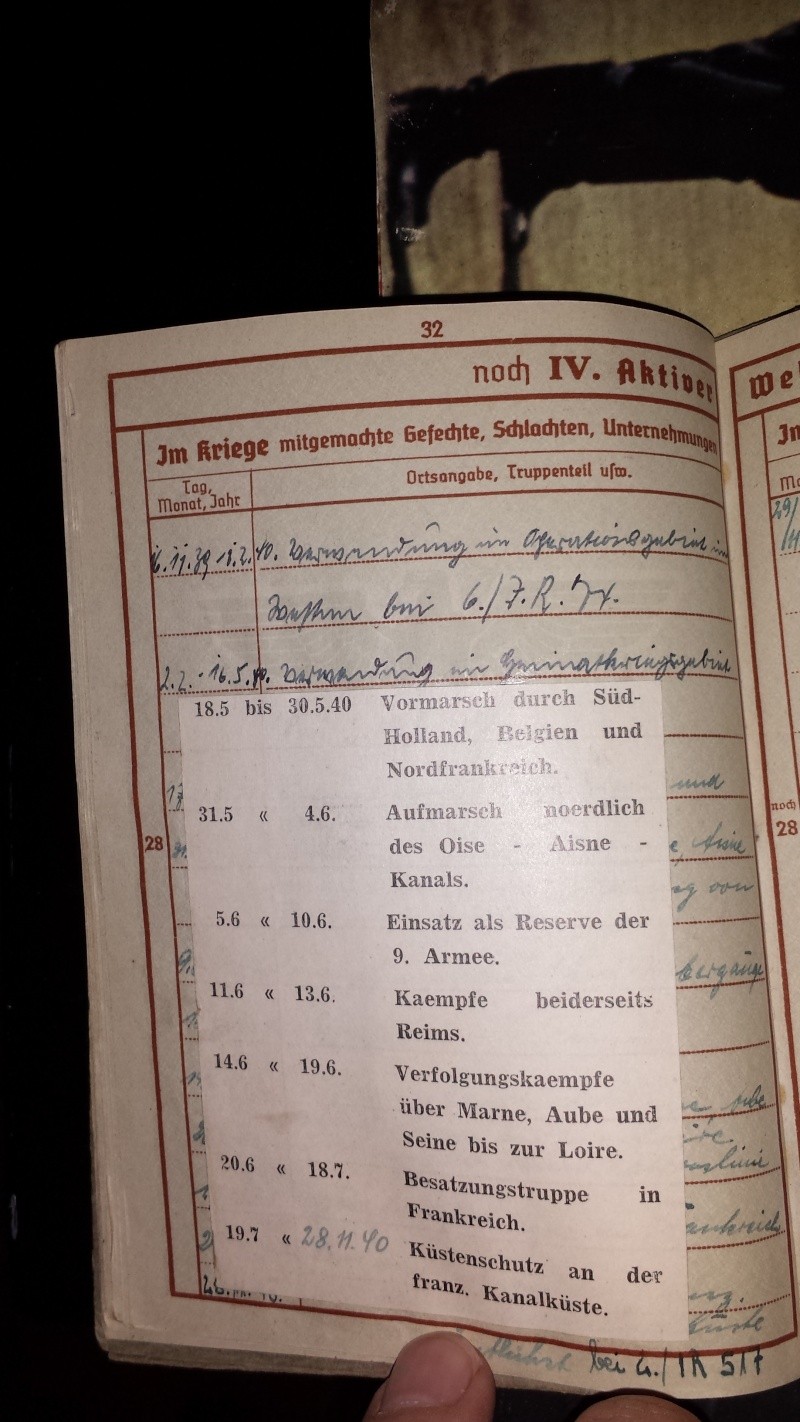 32
noch IV. Aktiver
Im Kriege mitgemachte Gefechte, Schlachten, Unternehmungen
Tag, Monat, Jahr
Ortsangabe, Truppenteil usw.
6.11.39 - 1.2.40. Verwendung im Operationsgebiet im
Westen bei 6./J.R. 74.
2.2. - 16.5.40. Verwendung im Heimatkriegsgebiet
18.5 bis 30.5.40 Vormarsch durch Süd-
Holland, Belgien und
Nordfrankreich.
31.5 « 4.6. Aufmarsch noerdlich
des Oise - Aisne -
Kanals.
5.6 « 10.6. Einsatz als Reserve der
9. Armee.
11.6 « 13.6. Kaempfe beiderseits
Reims.
14.6 « 19.6. Verfolgungskaempfe
über Marne, Aube und
Seine bis zur Loire.
20.6 « 18.7. Besatzungstruppe in
Frankreich.
19.7 « 28.11.40 Küstenschutz an der
franz. Kanalküste.
28
und
Aisne
von
bei 2./IR 517
We
noch
28